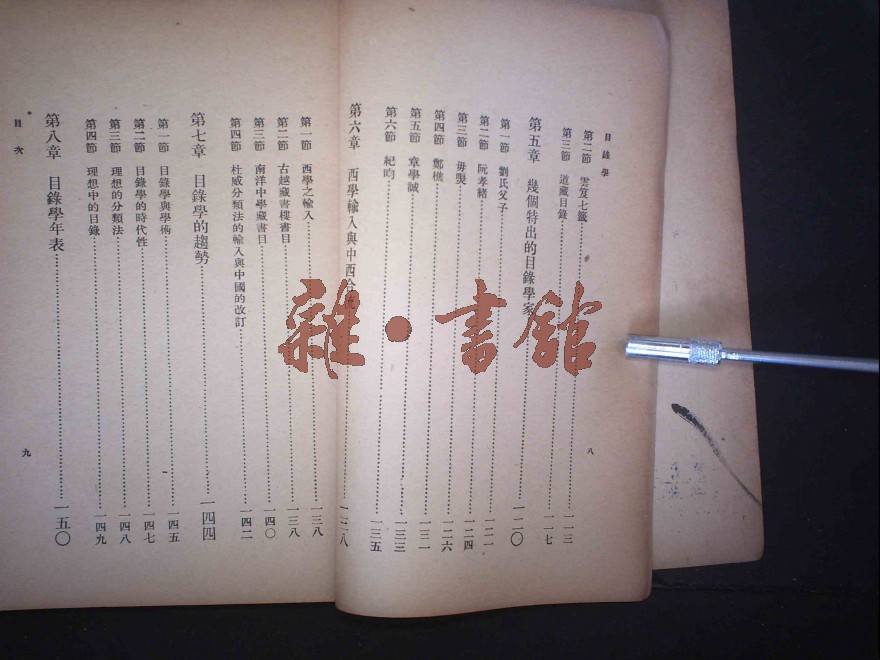 目錄學
第二節 雲笈七籤 一一三
第三節 道藏目錄 一一七
第五章 幾個特出的目錄學家 一二〇
第一節 劉氏父子 一二一
第二節 阮孝緒 一二四
第三節 毋煚 一二六
第四節 鄭樵 一三一
第五節 章學誠 一三三
第六節 紀昀 一三五
八
第六章 西學輸入與中西 一三八
第一節 西學之輸入 一三八
第二節 古越藏書樓書目 一三八
第三節 南洋中學藏書目 一四〇
第四節 杜威分類法的輸入與中國的改訂 一四二
第七章 目錄學的趨勢 一四四
第一節 目錄學與學術 一四五
第二節 目錄學的時代性 一四七
第三節 理想的分類法 一四八
第四節 理想中的目錄 一四九
第八章 目錄學年表 一五〇
目次
九
雜·書館